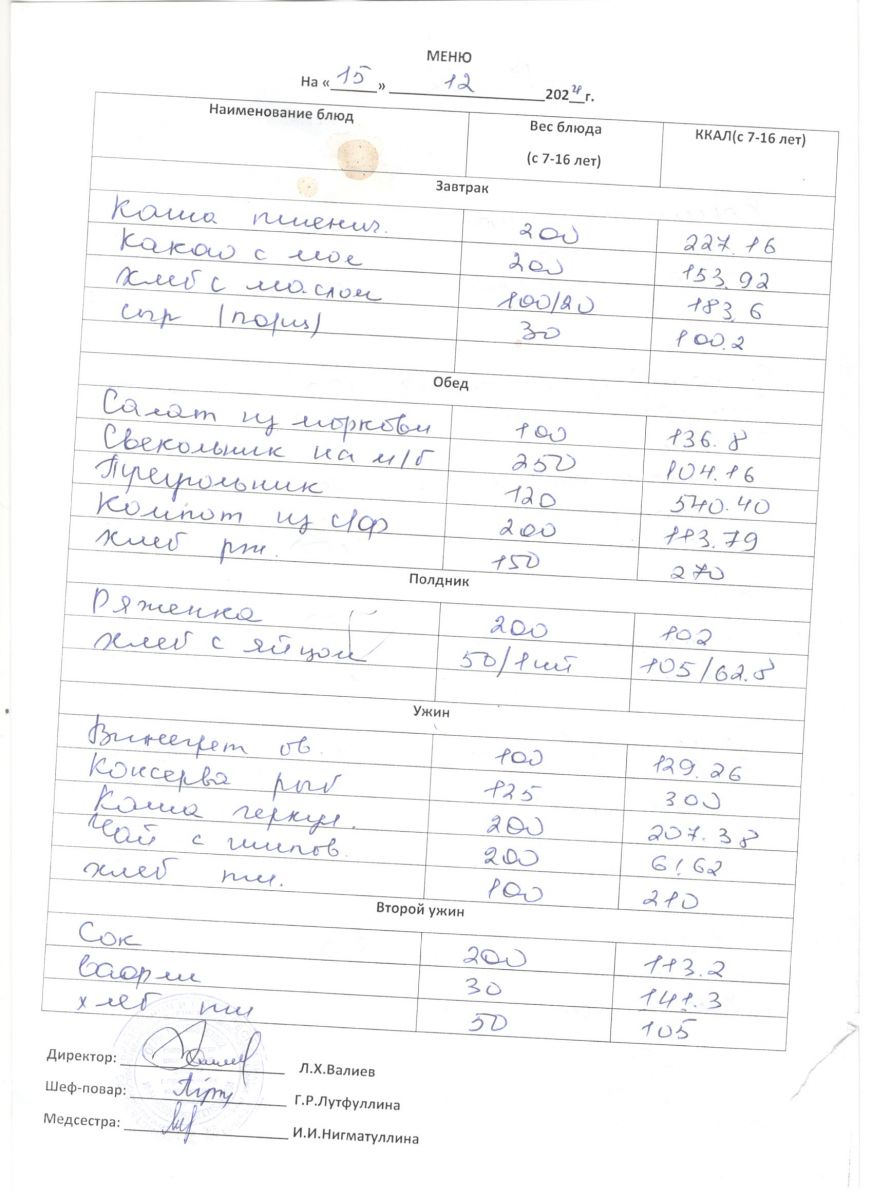 МЕНЮ
На «15» 12 2024г.
Наименование блюд Вес блюда (с 7-16 лет) ККАЛ(с 7-16 лет)
Завтрак
Каша пшенич. 200 227.16
Какао с мол 200 153.92
Хлеб с маслом 100/20 183.6
сыр (порц) 30 100.2
Обед
Салат из моркови 100 136.8
Свекольник на м/б 250 104.16
Треугольник 120 540.40
Компот из с/ф 200 113.79
хлеб рж. 150 270
Полдник
Ряженка 200 102
хлеб с яйцом 50/1шт 105/62.8
Ужин
Винегрет ов. 100 129.26
Консерва рыб 125 300
Каша геркул. 200 207.38
Чай с шипов. 200 61.62
хлеб пш. 100 210
Второй ужин
Сок 200 113.2
Вафли 30 141.3
хлеб пш 50 105
Директор: Л.Х.Валиев
Шеф-повар: Г.Р.Лутфуллина
Медсестра: И.И.Нигматуллина